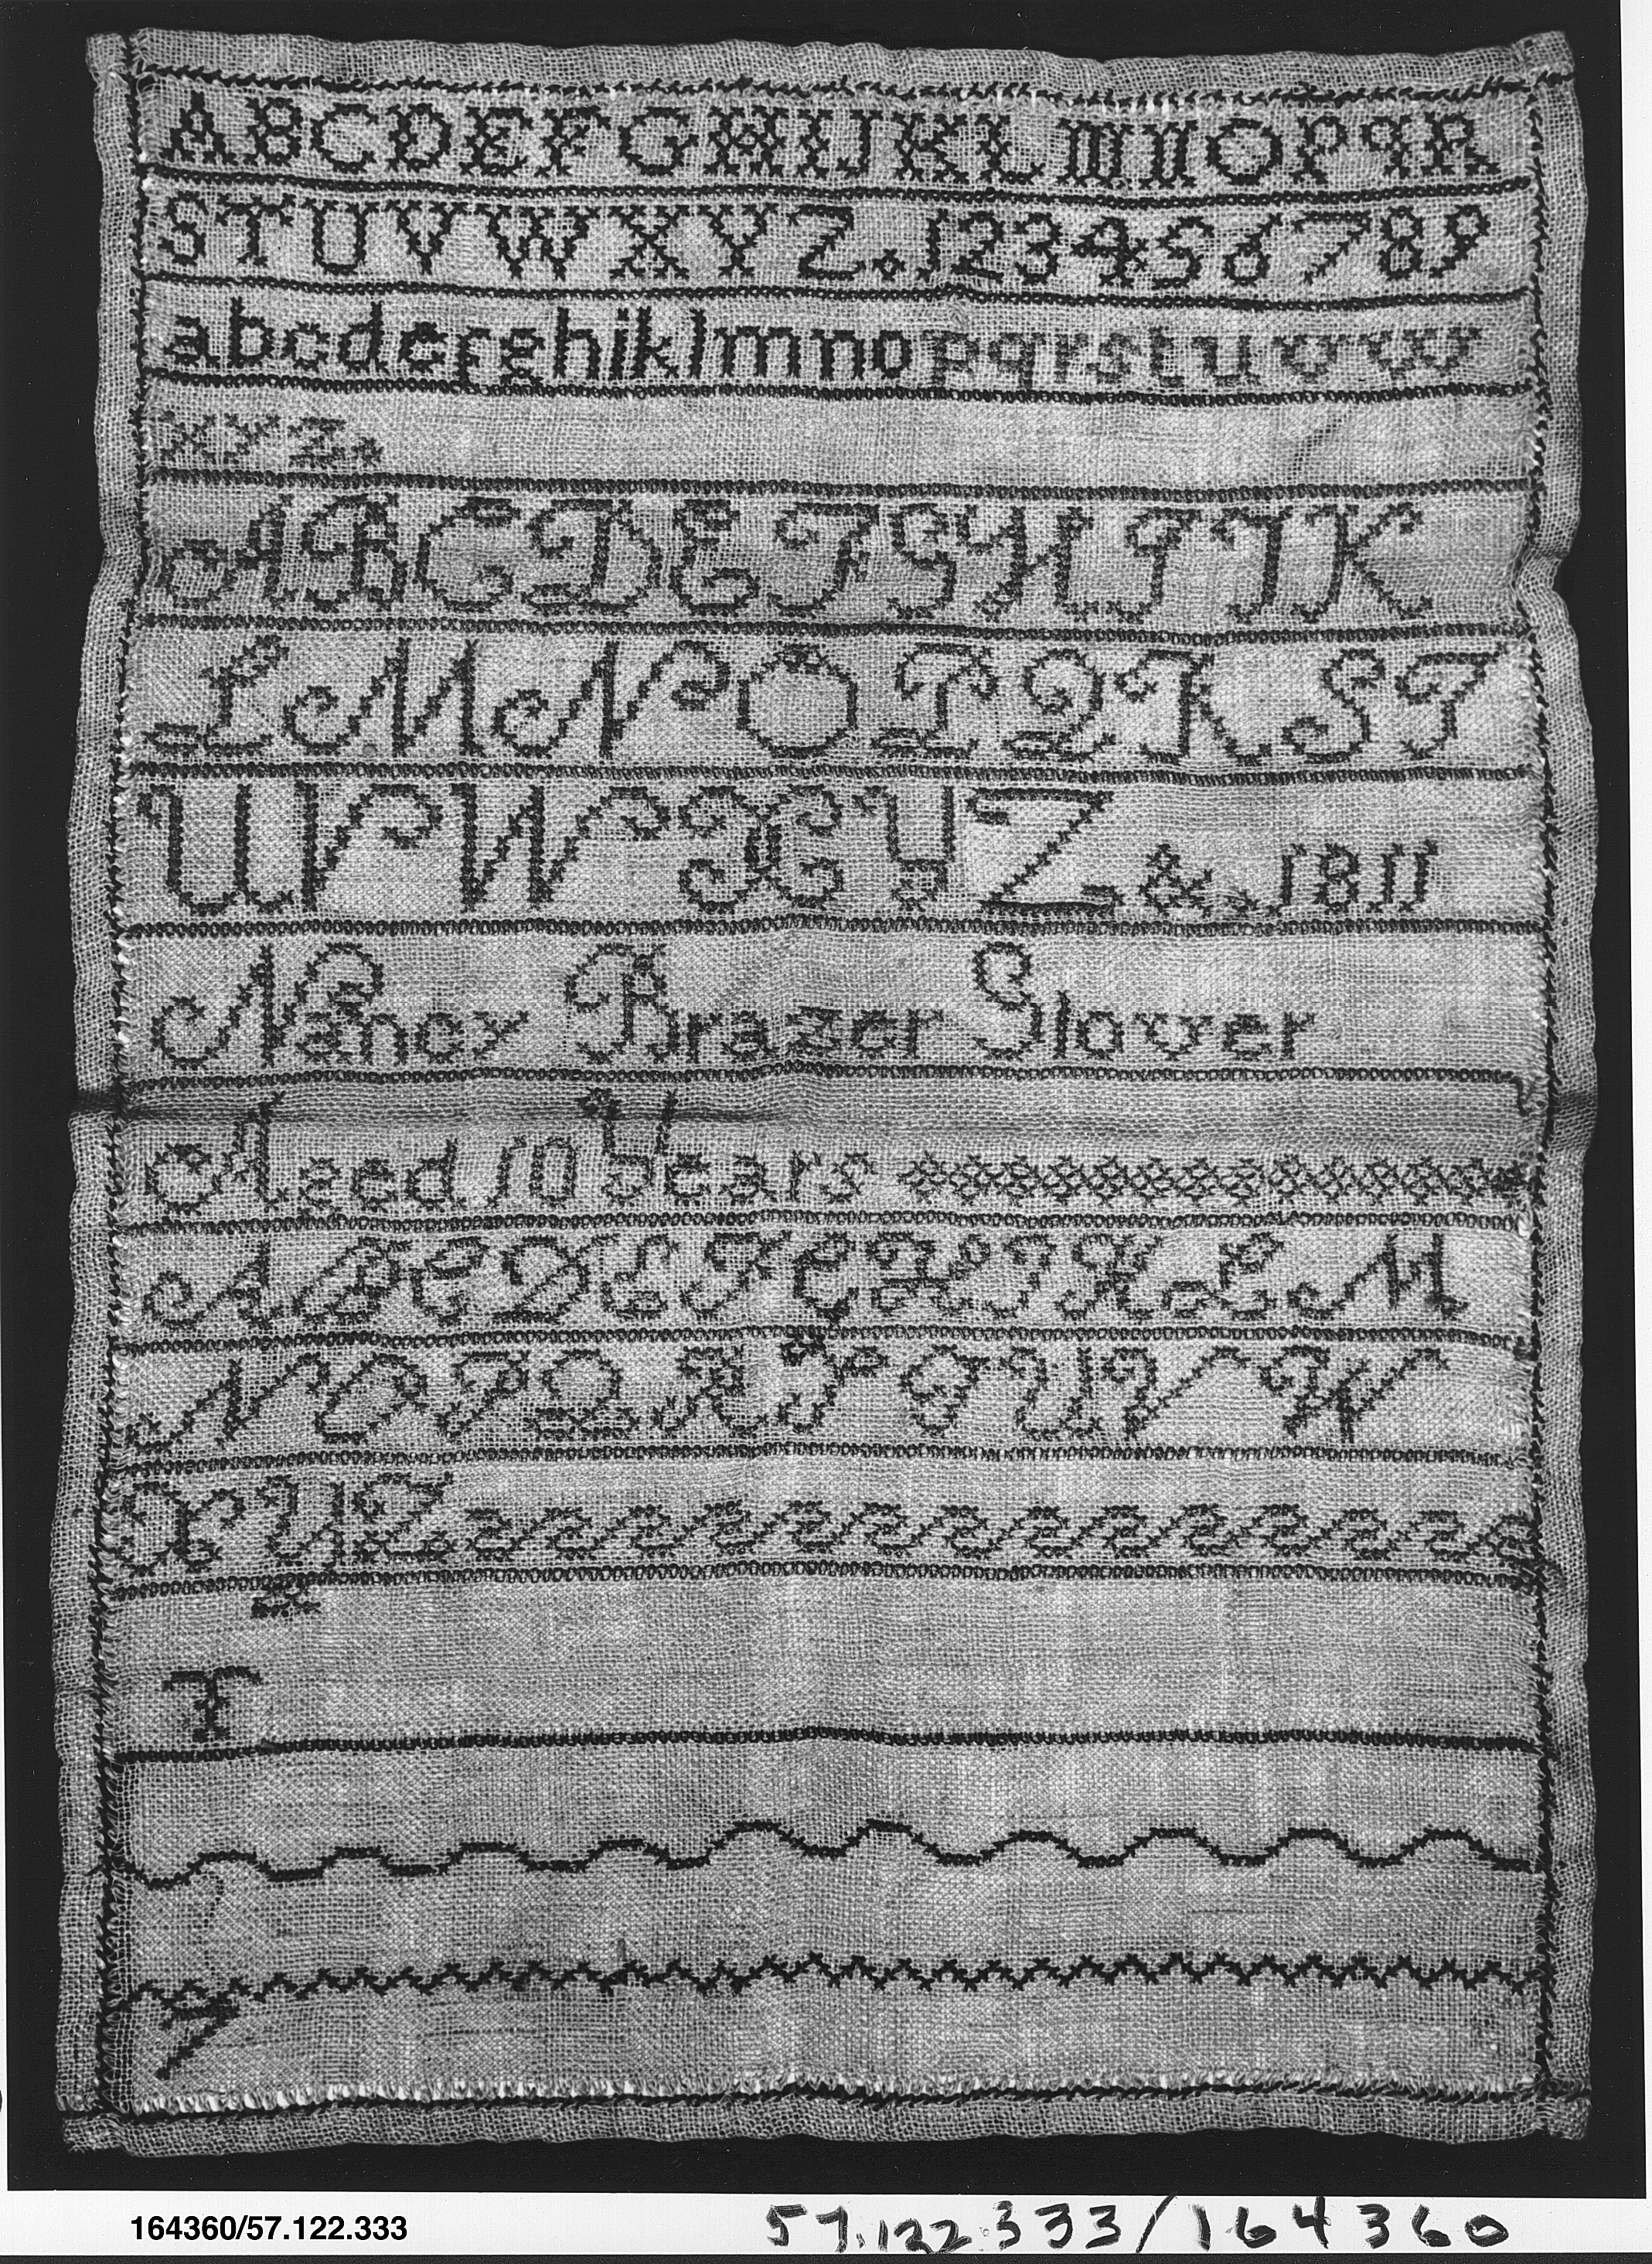 ABCDEFGHIJKLMNOPqR
STUVWXYZ.123456789
abcdefghiklmnopqrstuvw
xyz.
ABCDEFGHIJK
LMNOPQRST
UVWXYZ&.1811
Nancy Brazer Slover
Aged 10 Years
ABCDEFGHIJKLM
NOPQRSTUVW
XYZ
T
7
164360/57.122.333
57.122.333/164360